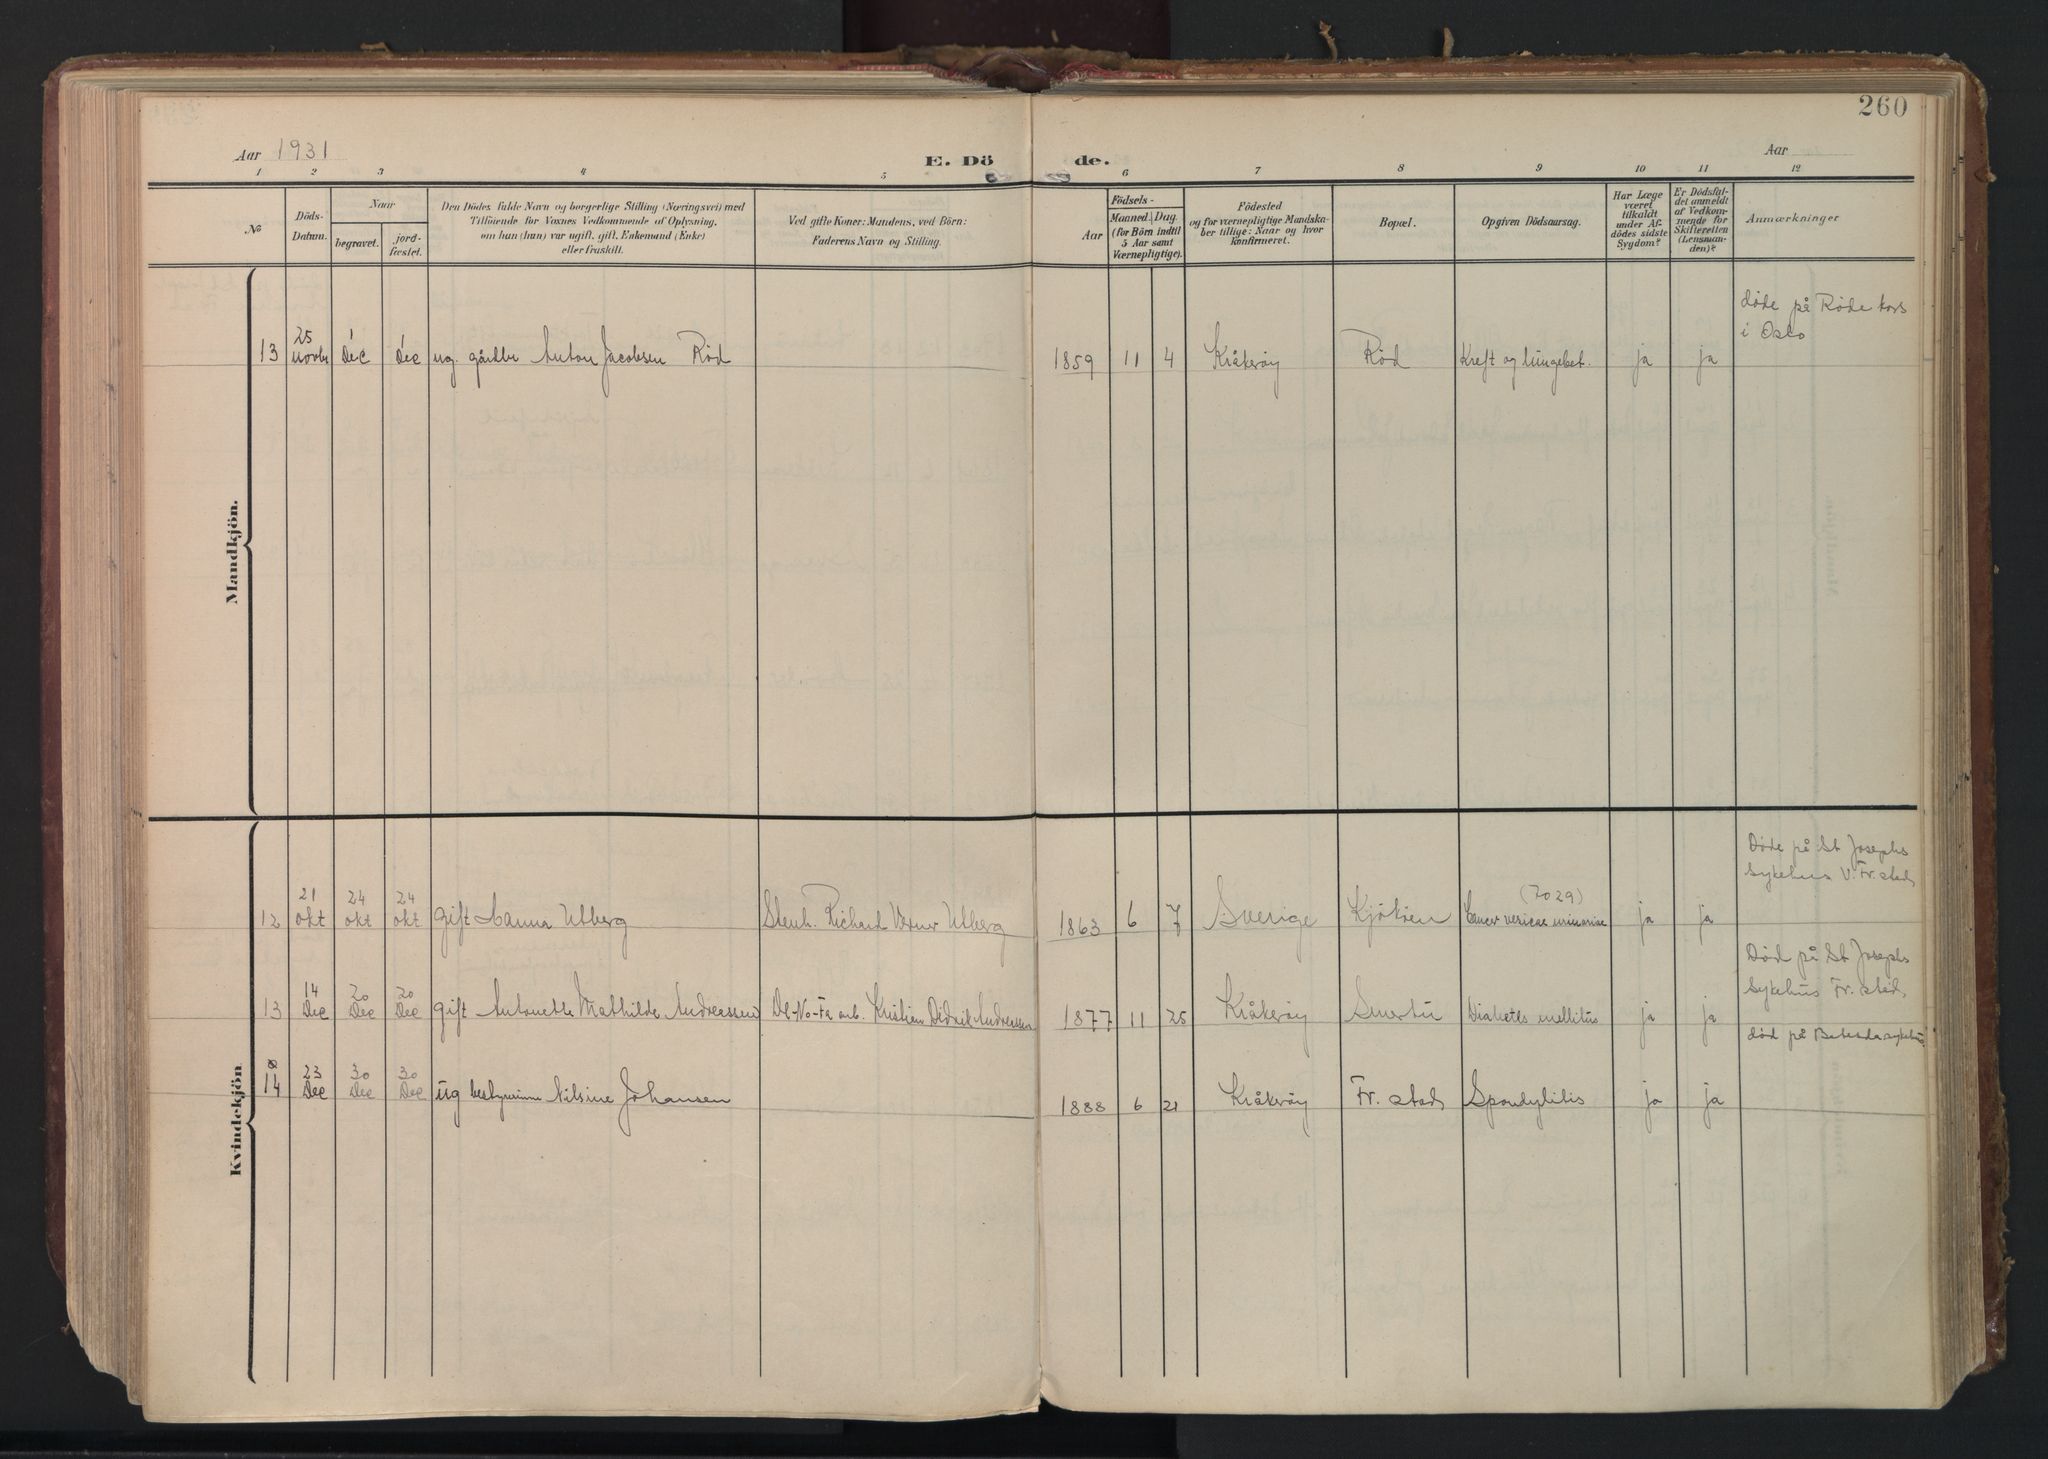 260
Aar 1931
E. Dö de.
Aar
1 2 3 4 5 6 7 8 9 10 11 12
No
Döds-Datum.
Naar
begravet.
jord-fæstet.
Den Dödes fulde Navn og borgerlige Stilling (Næringsvei) med
Tilföiende for Voxnes Vedkommende af Oplysning,
om hun (han) var ugift, gift, Enkemand (Enke)
eller fraskilt.
Ved gifte Koner: Mandens, ved Börn:
Faderens Navn og Stilling.
Födsels-
Aar
Maaned. Dag.
(for Börn indtil
5 Aar samt
Værnepligtige).
Födested
og for værnepligtige Mandska-
ber tillige: Naar og hvor
konfirmeret.
Bopæl.
Opgiven Dödsaarsag.
Har Læge
været
tilkaldt
under Af-
dödes sidste
Sygdom?
Er Dödsfal-
det anmeldt
af Vedkom-
mende for
Skifteretten
(Lensman-
den)?
Anmærkninger
Mandkjön.
døde på Røde kors
i Oslo
13 25 novbr 1 Dec 1 Dec ug. gårdbr Anton Jacobsen Rød 1859 11 4 Kråkerøy Rød Kreft og lungebet. ja ja
Kvindekjön
Døde på St Josephs
sykehus v. Fr.stad
12 21 okt 24 okt 24 okt gift Hanna Utberg Stenh. Richard Verner Utberg 1863 6 7 Sverige Kjøkøen (7029) Cancer vesicae urinariae ja ja
Død på St Josephs
sykehus Fr. stad
13 14 Dec 20 Dec 20 Dec gift Antonette Mathilde Andreassen De-No-Fa arb. Kristian Didrik Andreassen 1877 11 25 Kråkerøy Smertu Diabetes mellitus ja ja
død på Betesda sykehus
14 23 Dec 30 Dec 30 Dec ug bestyrerinne Nilsine Johansen 1888 6 21 Kråkerøy Fr. stad Spondylitis ja ja